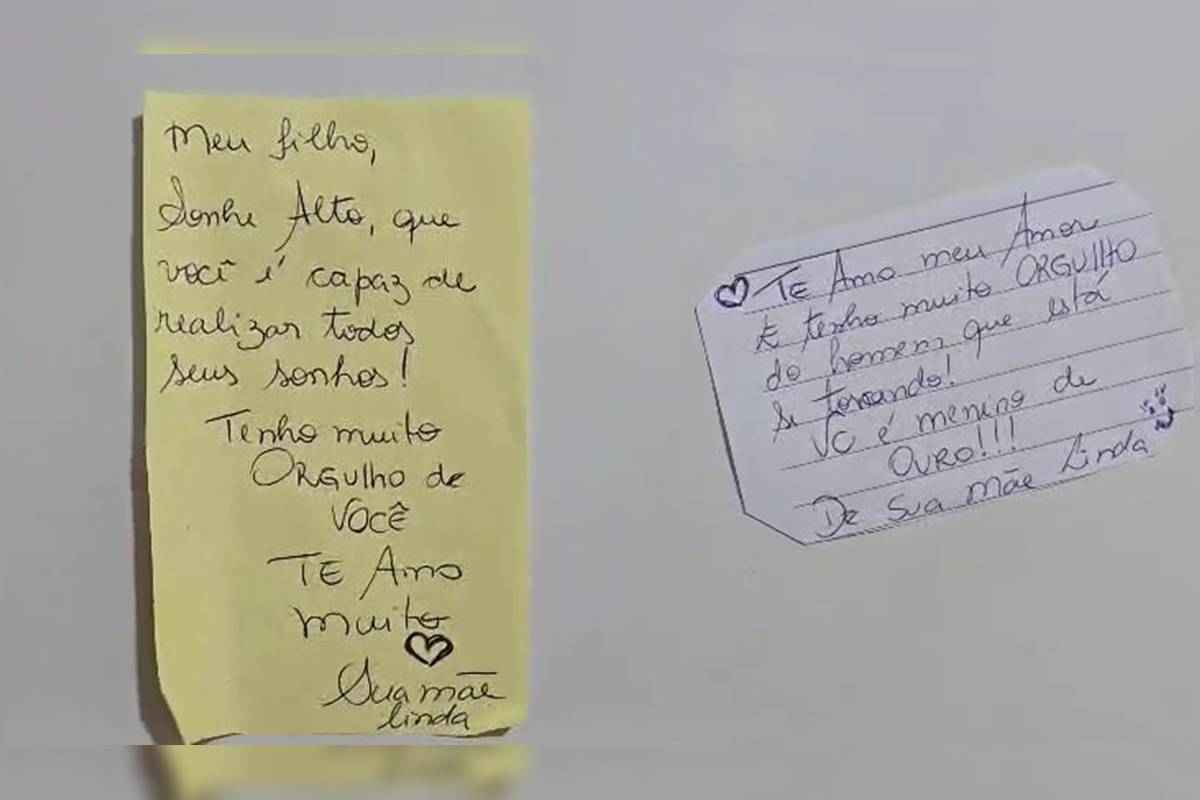 Meu filho,
Sonhe Alto, que
você é capaz de
realizar todos
seus sonhos!
Tenho muito
ORGulho de
VOCÊ
TE Amo
muito
Sua mãe
linda
TE Amo meu Amor
E tenho muito ORGULHO
do homem que está
se tornando!
VC é menino de
OURO!!!
De Sua mãe Linda